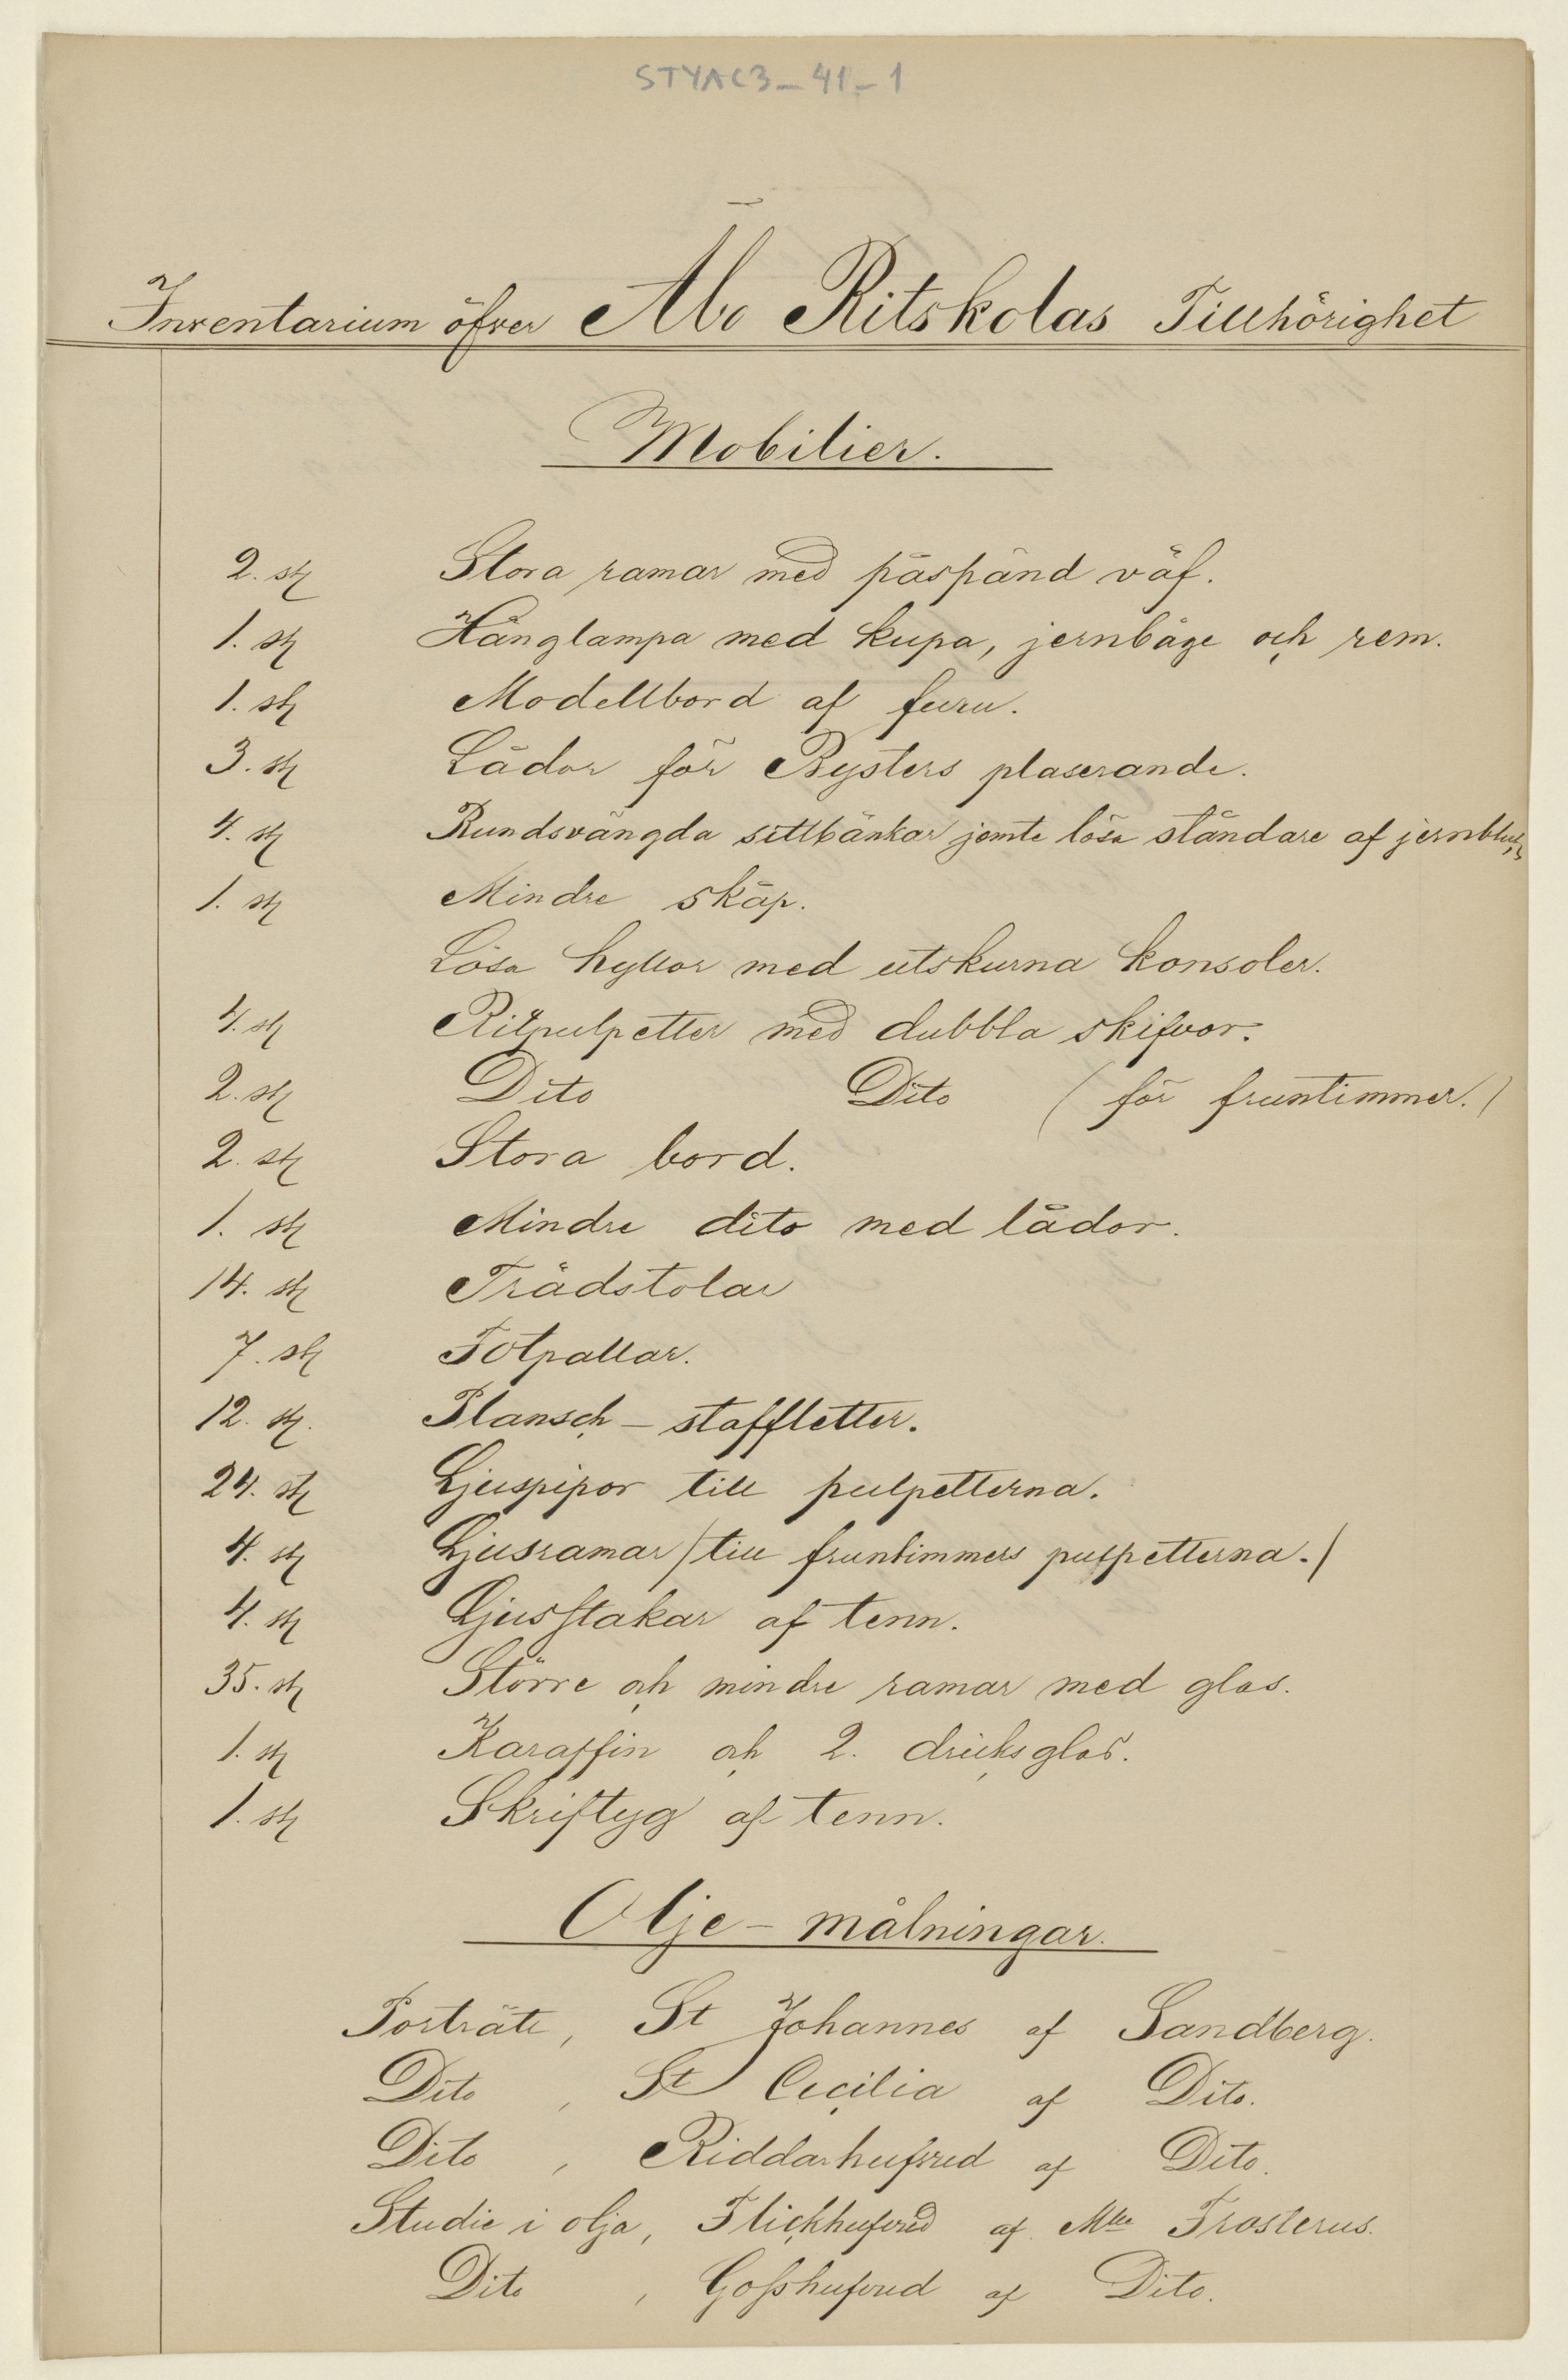 STYAC3_41_1
Inventarium öfver Åbo Ritskolas Tillhörighet
Mobilier.
2. st Stora ramar med påspänd väf.
1. st Hänglampa med kupa, jernbåge och rem.
1. st Modellbord af furu.
3. st Lådor för Bysters plaserande.
4. st Rundsvängda sittbänkar jemte lösa ståndare af jernbleck
1. st Mindre skåp.
Lösa hyllor med utskurna konsoler.
4. st Ritpulpetter med dubbla skifvor.
2. st Dito Dito (för fruntimmer.)
2. st Stora bord.
1. st Mindre dito med lådor.
14. st Trädstolar
7. st Fotpallar.
12. st. Plansch-staffletter.
24. st Ljuspipor till pulpetterna.
4. st Ljusramar /till fruntimmers pulpetterna./
4. st Ljusstakar af tenn.
35. st Större och mindre ramar med glas.
1. st Karaffin och 2. dricksglas.
1. st Skriftyg af tenn.
Olje-målningar.
Porträte, St Johannes af Sandberg.
Dito, St Cecilia af Dito.
Dito, Riddarhufvud af Dito.
Studie i olja, Flickhufvud af Mlle Frosterus.
Dito, Gosshufvud af Dito.